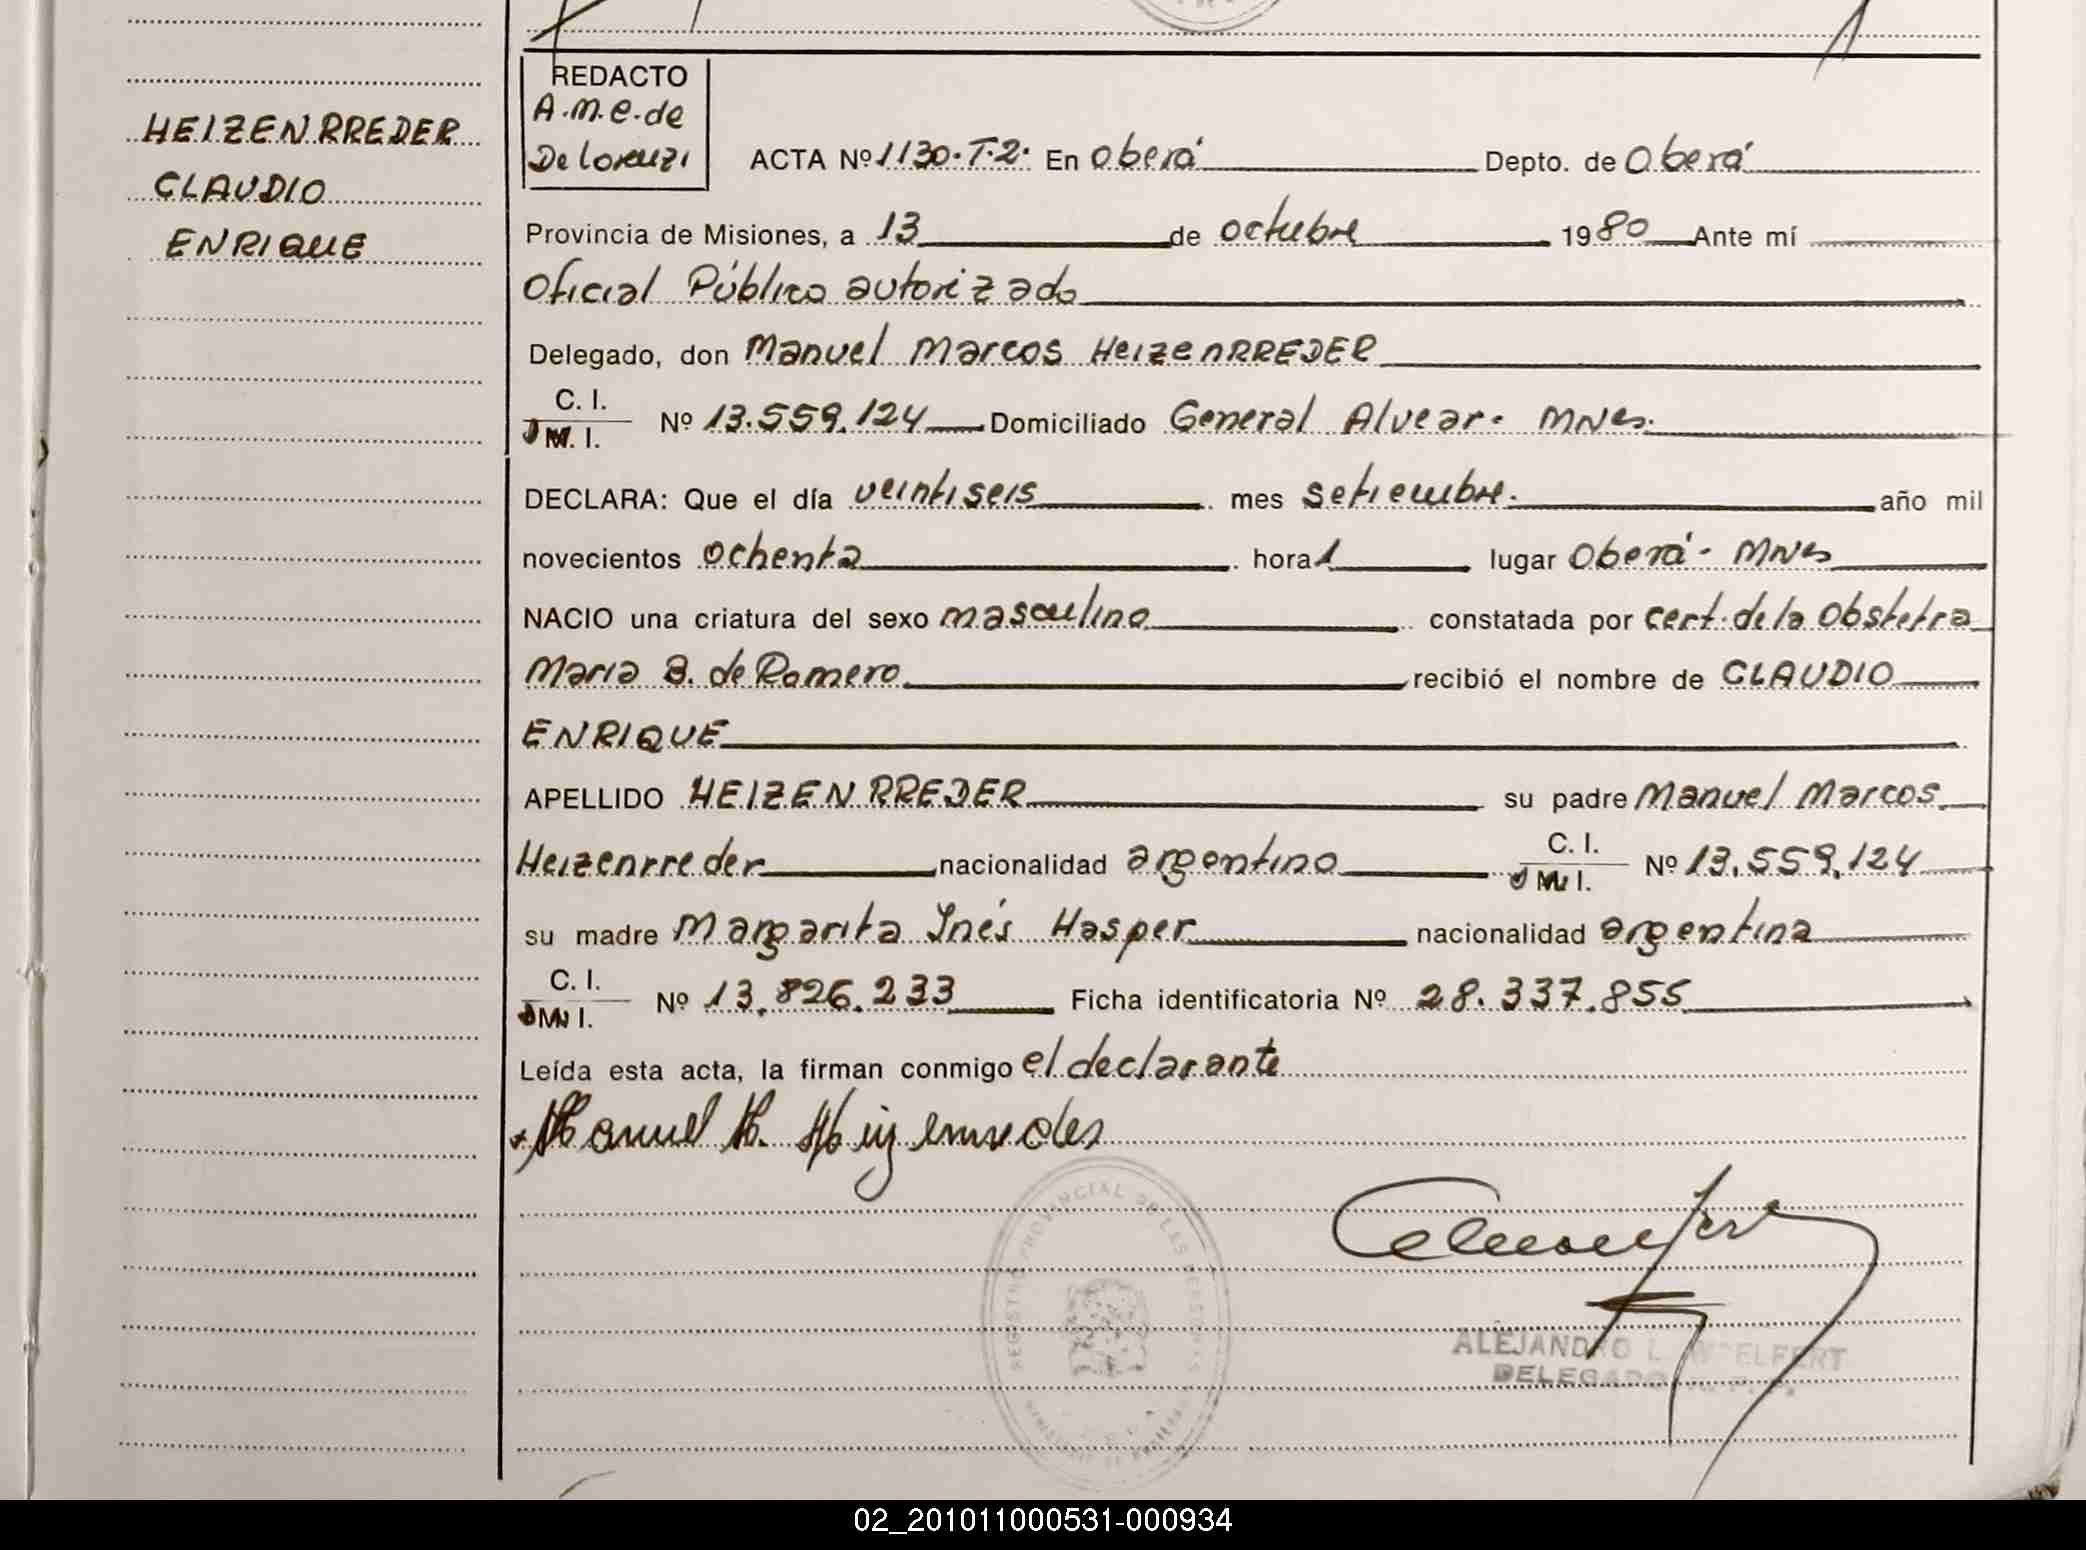 HEIZENRREDER
CLAUDIO
ENRIQUE
REDACTO
A.M.E. de
De Lorenzi
ACTA Nº 1130.T.2. En Oberá Depto. de Oberá
Provincia de Misiones, a 13 de octubre 1980 Ante mí
Oficial Público autorizado
Delegado, don Manuel Marcos HeizenRREDER
C. I.
D M. I. Nº 13.559.124 Domiciliado General Alvear - MNes.
DECLARA: Que el día veintiseis mes setiembre. año mil
novecientos ochenta hora 1 lugar Oberá - MNes
NACIO una criatura del sexo masculino constatada por cert. de la Obstetra
Maria B. de Romero recibió el nombre de CLAUDIO
ENRIQUE
APELLIDO HEIZENRREDER su padre Manuel Marcos
Heizenrreder nacionalidad argentino C. I. D M. I. Nº 13.559.124
su madre Margarita Inés Hasper nacionalidad argentina
C. I.
D M. I. Nº 13.826.233 Ficha identificatoria Nº 28.337.855
Leída esta acta, la firman conmigo el declarante
Manuel M. Heizenrreder
REGISTRO PROVINCIAL DE LAS PERSONAS
ALEJANDRO L. WOELFERT
DELEGADO
02_201011000531-000934